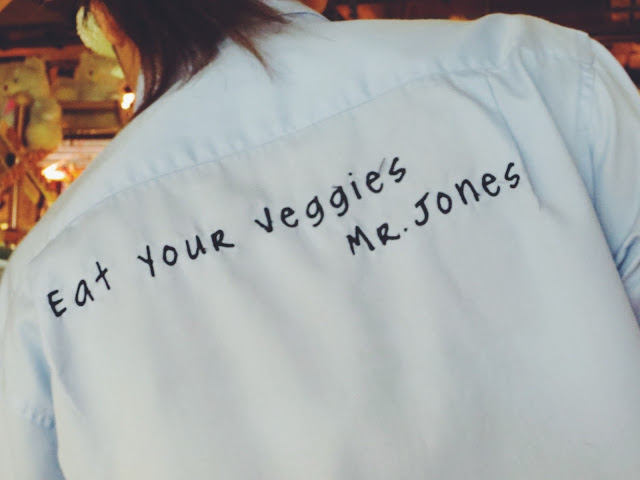 Eat YOUR Veggies
MR. JONES